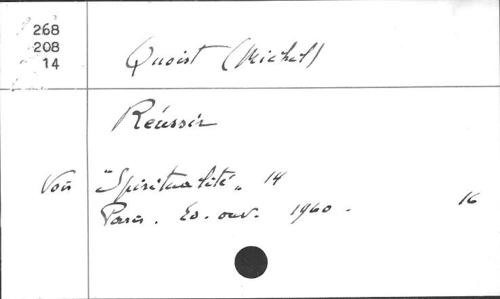 268
208
14
Quoist (Michel)
Réussir
Voir "Spiritualité" 14
Paris. Ed. ouv. 1960. 16